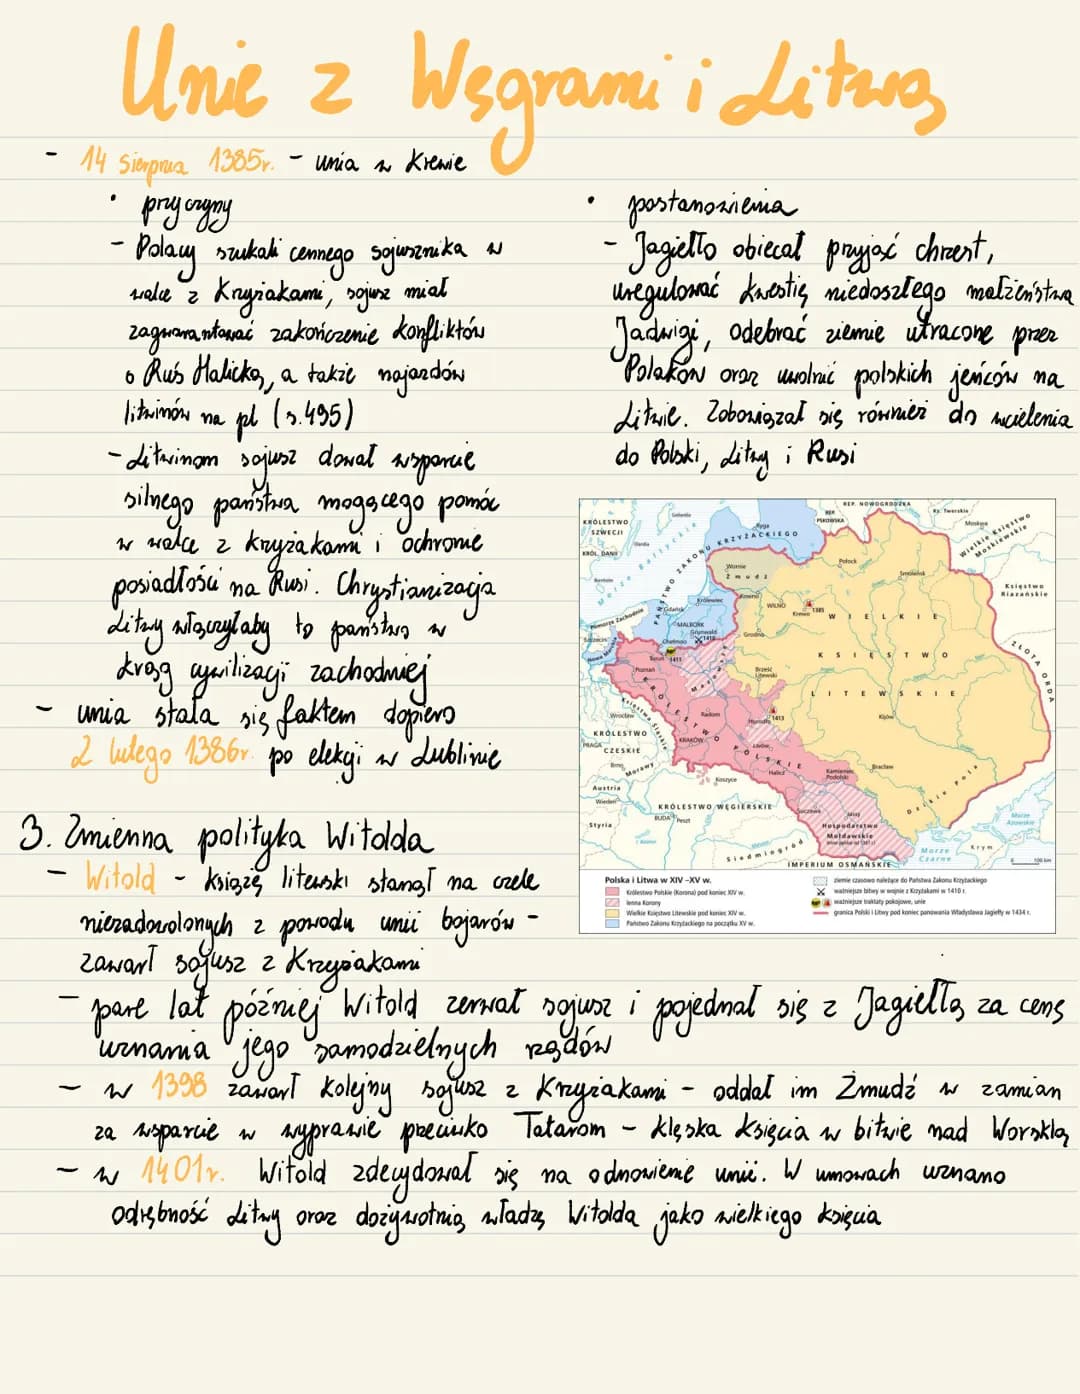 Unie z Węgrami i Litwą
- 14 Sierpnia 1385r. - unia w Krewie
• przyczyny
- Polacy szukali cennego sojusznika w
walce z Krzyżakami, sojusz miał
zagwarantować zakończenie konfliktów
o Ruś Halicką, a także najazdów
litwinów na pl (s.495)
- Litwinom sojusz dawał wsparcie
silnego państwa mogącego pomóc
w walce z krzyżakami i ochronie
posiadłości na Rusi. Chrystianizacja
Litwy włączyłaby to państwo w
krąg cywilizacji zachodniej
- unia stała się faktem dopiero
2 lutego 1386r. po elekcji w Lublinie
• postanowienia
- Jagiełło obiecał przyjąć chrzest,
uregulować kwestię niedoszłego małżeństwa
Jadwigi, odebrać ziemie utracone przez
Polaków oraz uwolnić polskich jeńców na
Litwie. Zobowiązał się również do wcielenia
do Polski, Litwy i Rusi
REP. NOWOGRODZKA
Ks. Twerskie
KRÓLESTWO
SZWECJI
Gotlandia
Ryga
REP.
PSKOWSKA
Moskwa
Wielkie Księstwo
Moskiewskie
KRÓL. DANII
Olandia
Morze Bałtyckie
PAŃSTWO ZAKONU KRZYŻACKIEGO
Wornie
Żmudź
Połock
Smoleńsk
Księstwo
Riazańskie
Bornholm
Królewiec
Kowno
WILNO
Krewo
1385
Gdańsk
MALBORK
Grunwald
1410
Pomorze Zachodnie
Szczecin
Nowa Marchia
Chełmno
Toruń
1411
Grodno
WIELKIE
KSIĘSTWO
LITEWSKIE
ZŁOTA ORDA
Poznań
Mazowsze
Brześć
Litewski
KRÓLESTWO POLSKIE
Księstwa Śląskie
Wrocław
Radom
Horodło
1413
Kijów
KRÓLESTWO
PRAGA
CZESKIE
KRAKÓW
Lwów
Brno
Morawy
Halicz
Kamieniec
Podolski
Bracław
Koszyce
Dzikie Pola
Austria
Wiedeń
KRÓLESTWO WĘGIERSKIE
BUDA
Peszt
Suczawa
Jassy
Styria
Hospodarstwo
Mołdawskie
Morze
Azowskie
Siedmiogród
Morze
Czarne
Krym
IMPERIUM OSMAŃSKIE
0 100 km
Polska i Litwa w XIV -XV w.
Królestwo Polskie (Korona) pod koniec XIV w.
lenna Korony
Wielkie Księstwo Litewskie pod koniec XIV w.
Państwo Zakonu Krzyżackiego na początku XV w.
ziemie czasowo należące do Państwa Zakonu Krzyżackiego
ważniejsze bitwy w wojnie z Krzyżakami w 1410 r.
ważniejsze traktaty pokojowe, unie
granica Polski i Litwy pod koniec panowania Władysława Jagiełły w 1434 r.
3. Zmienna polityka Witolda
- Witold - książę litewski stanął na czele
niezadowolonych z powodu unii bojarów -
zawarł sojusz z Krzyżakami
- parę lat później Witold zerwał sojusz i pojednał się z Jagiełłą za cenę
uznania jego samodzielnych rządów
- w 1398 zawarł kolejny sojusz z Krzyżakami - oddał im Żmudź w zamian
za wsparcie w wyprawie przeciwko Tatarom - klęska księcia w bitwie nad Worsklą
- w 1401r. Witold zdecydował się na odnowienie unii. W umowach uznano
odrębność Litwy oraz dożywotnią władzę Witolda jako wielkiego księcia